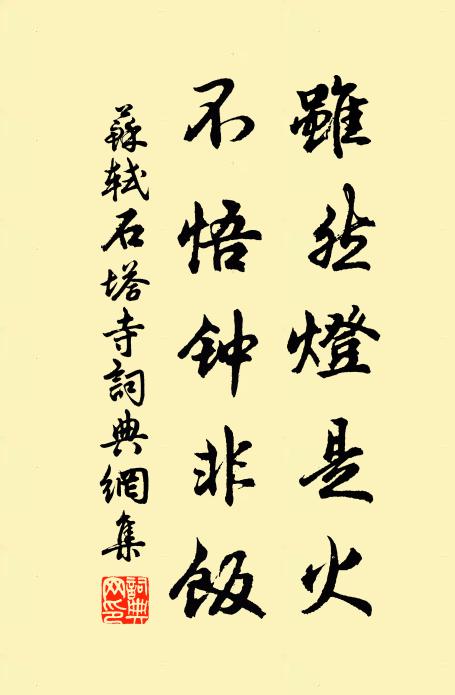 雖然燈是火
不悟钟非飯
蘇軾石塔寺詞典網集
詞典網印